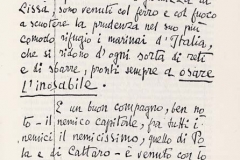 Lissa, sono venute col ferro e col fuoco
a scuotere la prudenza nel suo più
comodo rifugio i marinai d'Italia,
che si ridono d'ogni sorta di rete
e di sbarre, pronti sempre a osare
l'inosabile.
E un buon compagno, ben no-
to - il nemico capitale, fra tutti i
nemici il nemicissimo, quello di Po-
la e di Cattaro - è venuto con lo